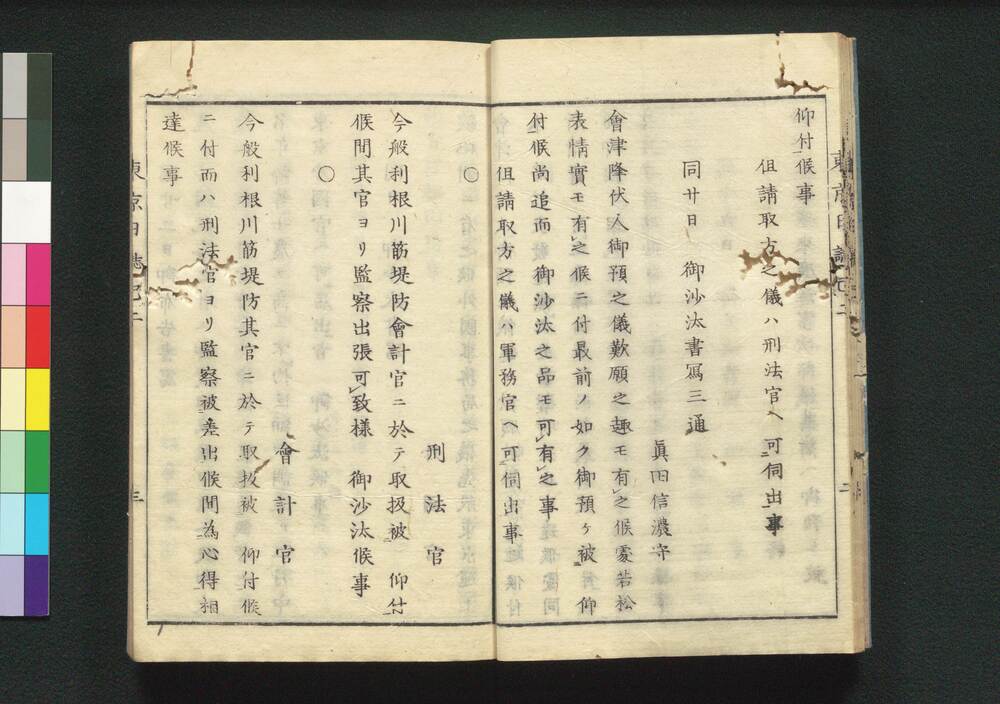 仰付候事
但請取方之儀ハ刑法官ヘ可伺出事
同廿日　御沙汰書寫三通
眞田信濃守
會津降伏人御預之儀歎願之趣モ有之候處若松
表情實モ有之候ニ付最前ノ如ク御預ケ被　仰
付候尚追而　御沙汰之品モ可有之事
但請取方之儀ハ軍務官ヘ可伺出事
○
刑法官
今般利根川筋堤防會計官ニ於テ取扱被　仰付
候間其官ヨリ監察出張可致樣　御沙汰候事
○
會計官
今般利根川筋堤防其官ニ於テ取扱被　仰付候
ニ付而ハ刑法官ヨリ監察被差出候間為心得相
達候事
東京日誌
三